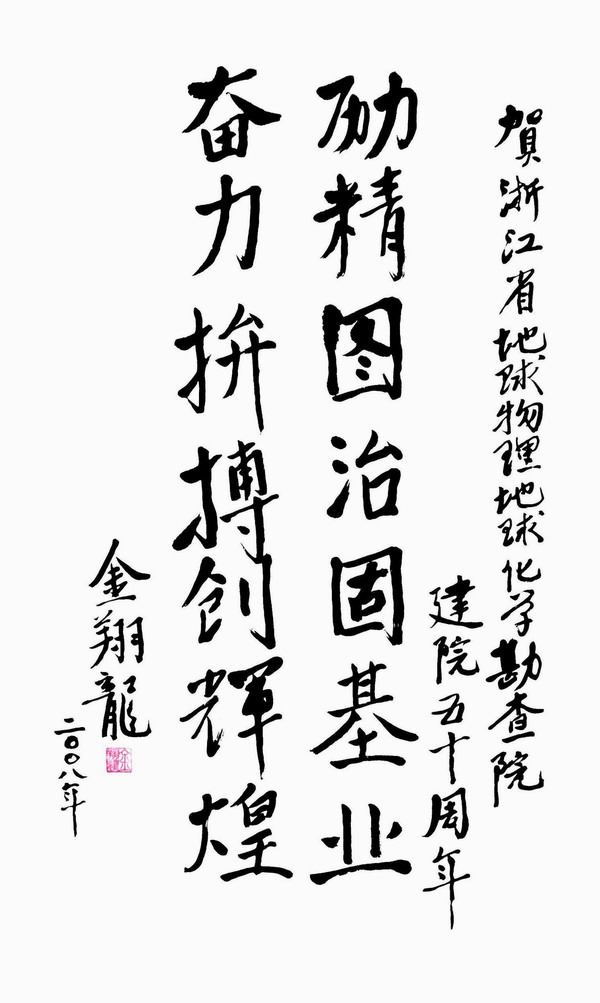 賀浙江省地球物理地球化学勘查院
建院五十周年
励精图治固基业
奋力拚搏创辉煌
金翔龍
二〇〇八年